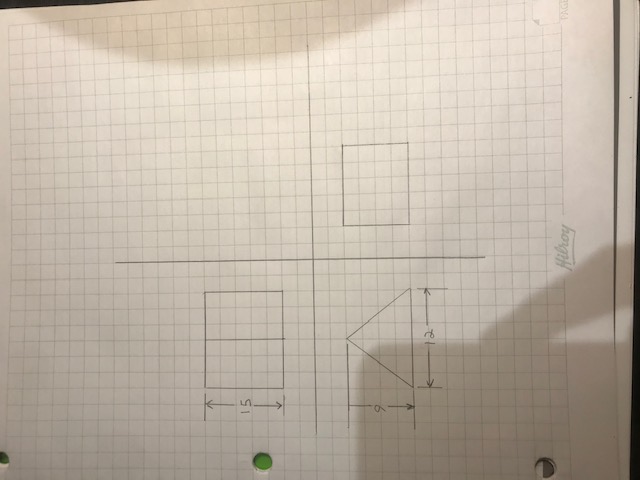 15
9
12
Hilroy
PAGE